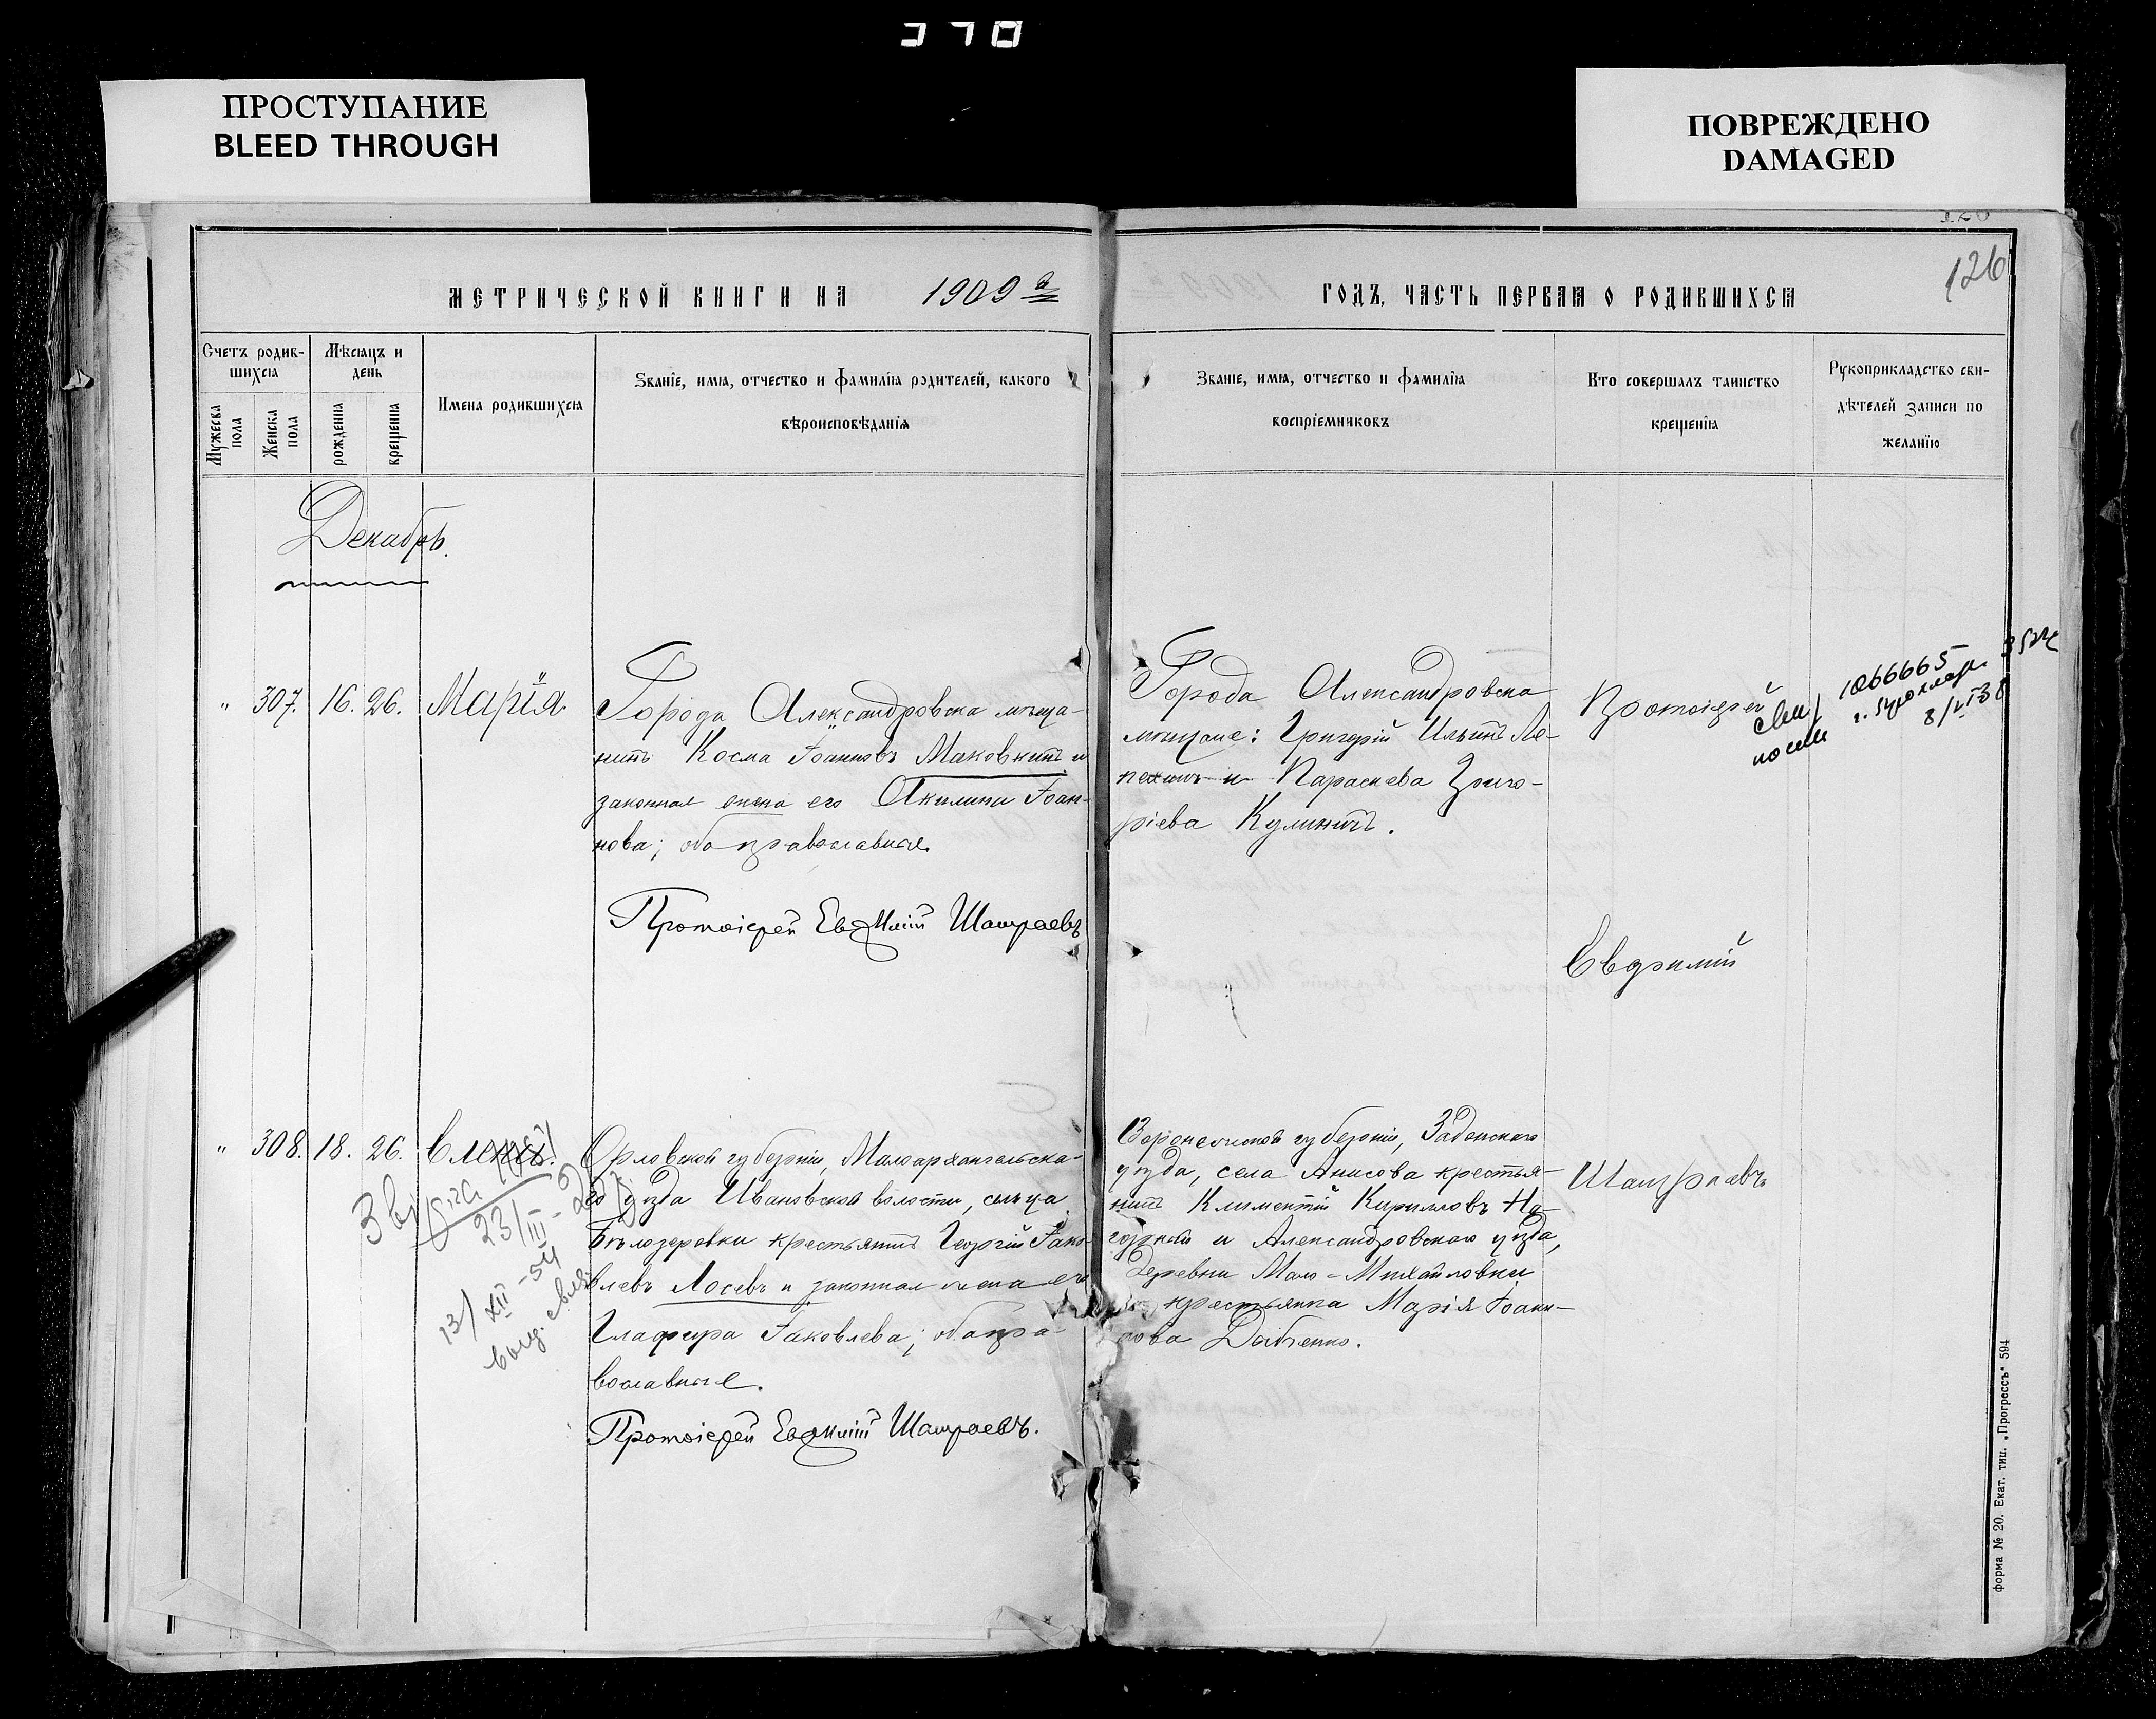 ПРОСТУПАНИЕ
BLEED THROUGH
ПОВРЕЖДЕНО
DAMAGED
126
МЕТРИЧЕСКОЙ КНИГИ НА 1909 й
ГОДЪ, ЧАСТЬ ПЕРВАЯ О РОДИВШИХСЯ
Счетъ родив-
шихся
Мужеска
пола
Женска
пола
Мѣсяцъ и
день
рожденiя
крещенiя
Имена родившихся
Званiе, имя, отчество и фамилiя родителей, какого
вѣроисповѣданiя
Званiе, имя, отчество и фамилiя
воспрiемниковъ
Кто совершалъ таинство
крещенiя
Рукоприкладство сви-
дѣтелей записи по
желанiю
Декабрь.
" 307. 16. 26. Марiя.
Города Александровска мѣща-
нинъ Косма Iоанновъ Маковкинъ и
законная жена его Акилина Iоан-
нова; оба православные.
Протоiерей Евѳимiй Шамраевъ
Города Александровска
мѣщане: Григорiй Ильинъ Ле-
пехинъ и Параскева Григо-
рiева Кулиничъ.
Протоiерей
1066665
Евѳимiй
Шамраевъ
" 308. 18. 26. Елена.
Орловской губернiи, Малоархангельска-
го уѣзда Ивановской волости, сельца
Бѣлозеровки крестьянинъ Георгiй Iако-
влевъ Лосевъ и законная жена его
Глафира Iаковлева; оба пра-
вославные.
Протоiерей Евѳимiй Шамраевъ.
23/III-
13/XII-54
выд.
Воронежской губернiи, Задонскаго
уѣзда, села Анисова крестья-
нинъ Климентiй Кирилловъ На-
горный и Александровскаго уѣзда,
деревни Мало-Михайловки
крестьянка Марiя Iоан-
нова
форма № 20. Екат. тип. „Прогрессъ" 594